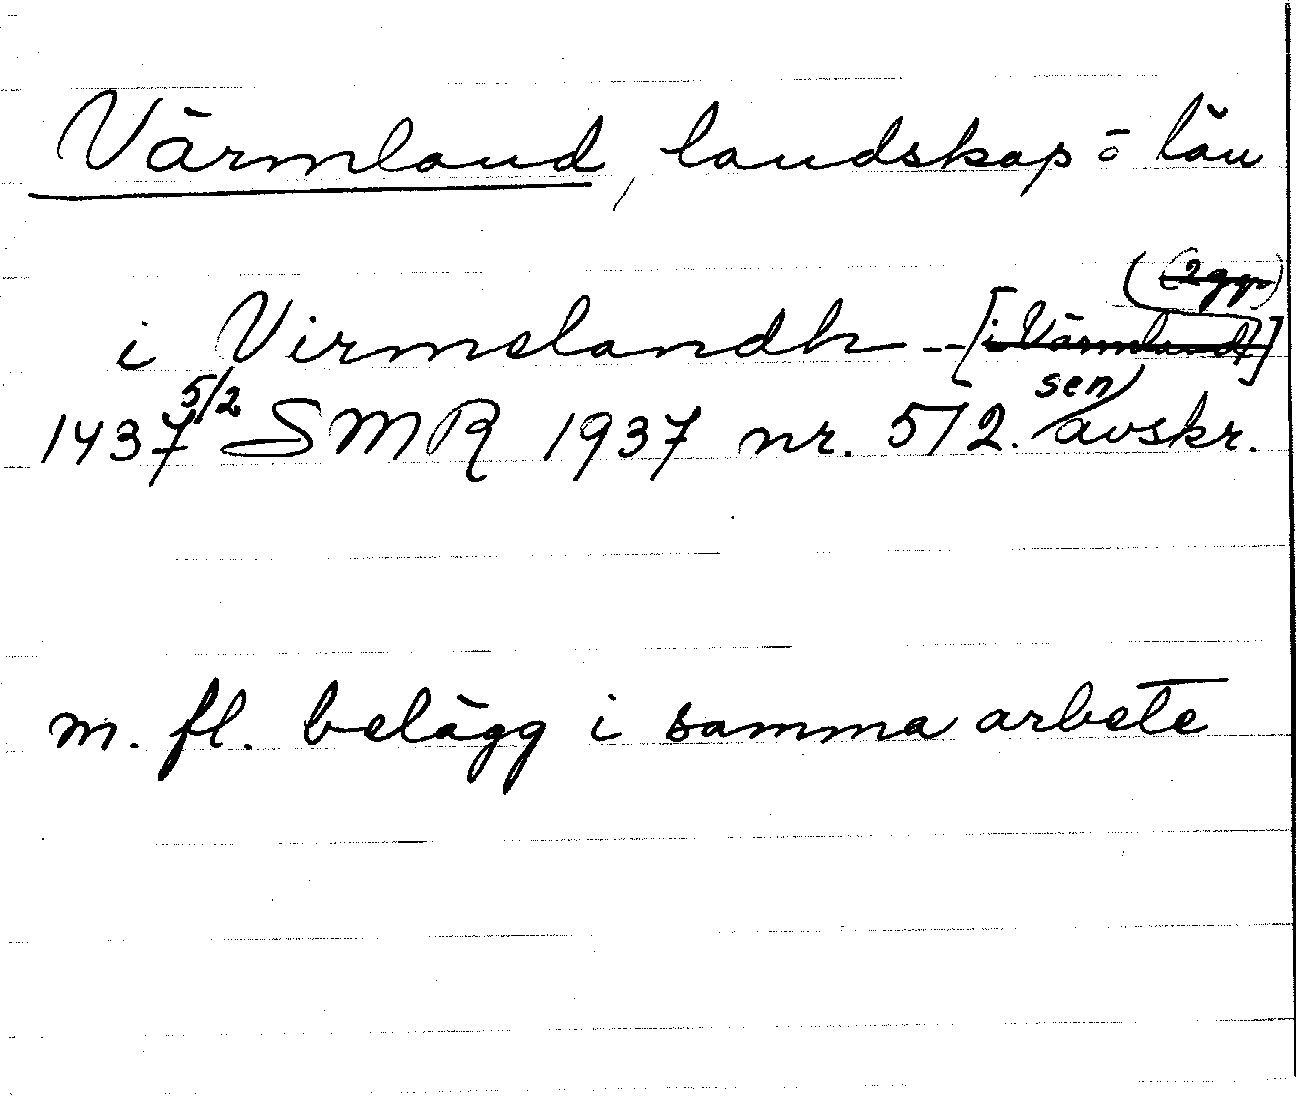 Värmland, landskap o län
(2 ggr)
i Virmslandh -- [i Värmlandt]
1437 5/2 SMR 1937 nr. 572. sen avskr.
m. fl. belägg i samma arbete